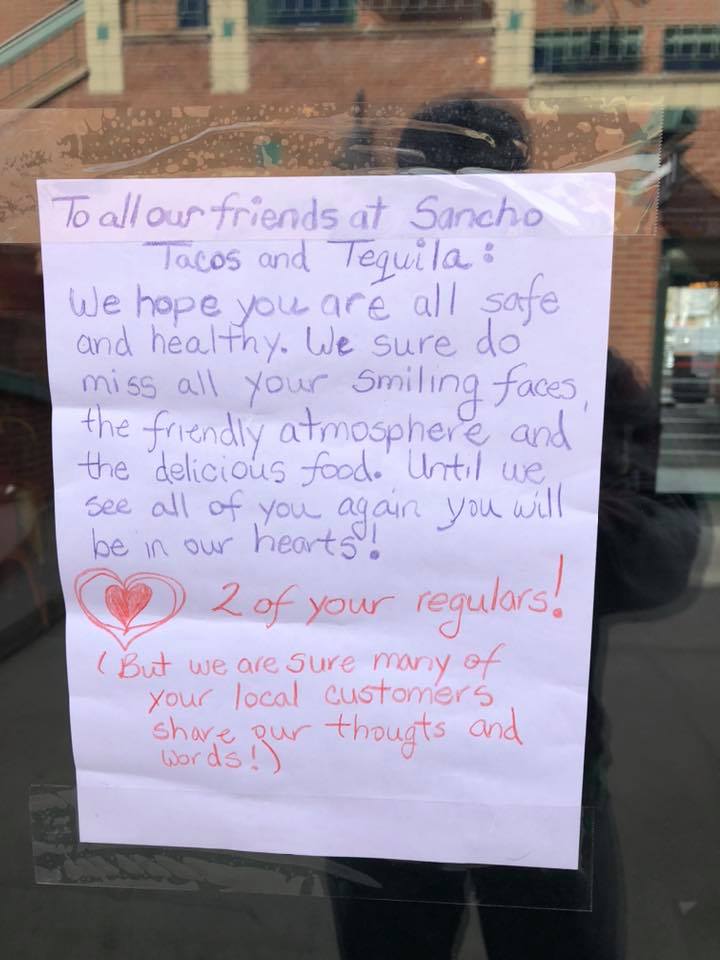 To all our friends at Sancho
Tacos and Tequila:
We hope you are all safe
and healthy. We sure do
miss all your smiling faces,
the friendly atmosphere and
the delicious food. Until we
see all of you again you will
be in our hearts!
2 of your regulars!
(But we are sure many of
your local customers
share our thougts and
words!)